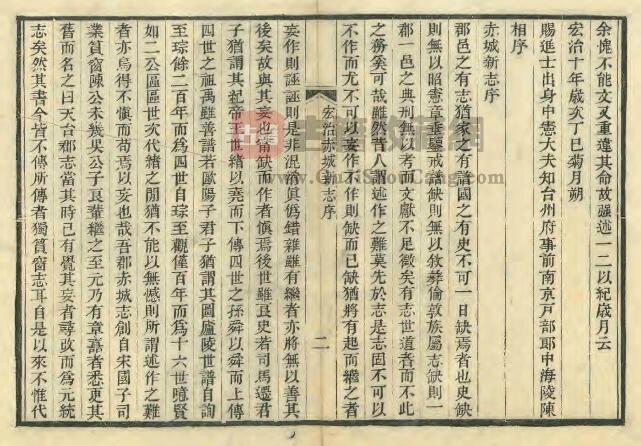 余愧不能文又重違其命故強述一二以紀歲月云
宏治十年歲次丁巳菊月朔
賜進士出身中憲大夫知台州府事前南京戶部郎中海陵陳
相序
赤城新志序
郡邑之有志猶家之有譜國之有史不可一日缺焉者也史缺
則無以昭憲章垂鑒戒譜缺則無以敘彝倫敦族屬志缺則一
郡一邑之典刑無以考而文獻不足徵矣有志世道者而不此
之務奚可哉雖然昔人謂述作之難莫先於志是志固不可以
不作而尤不可以妄作不作則缺而已缺猶將有起而繼之者
宏治赤城新志序
二
妄作則誣誣則是非混淆真僞錯雜雖有繼者亦將無以善其
後矣故與其妄也甯缺而作者愼焉後世雖良史若司馬遷君
子猶謂其紀帝王世緒以堯而下傳四世之孫舜以舜而上傳
四世之祖禹雖善譜若歐陽子君子猶謂其圖廬陵世譜自詢
至琮餘二百年而爲四世自琮至觀僅百年而爲十六世噫賢
如二公區區世次代緒之閒猶不能以無憾則所謂述作之難
者亦烏得不愼而苟焉以妄也哉吾郡赤城志創自宋國子司
業篔窗陳公未幾吳公子良輩繼之至元乃有章嚞者悉更其
舊而名之曰天台郡志當其時已有覺其妄者尋改而爲元統
志矣然其書今皆不傳所傳者獨篔窗志耳自是以來不惟代